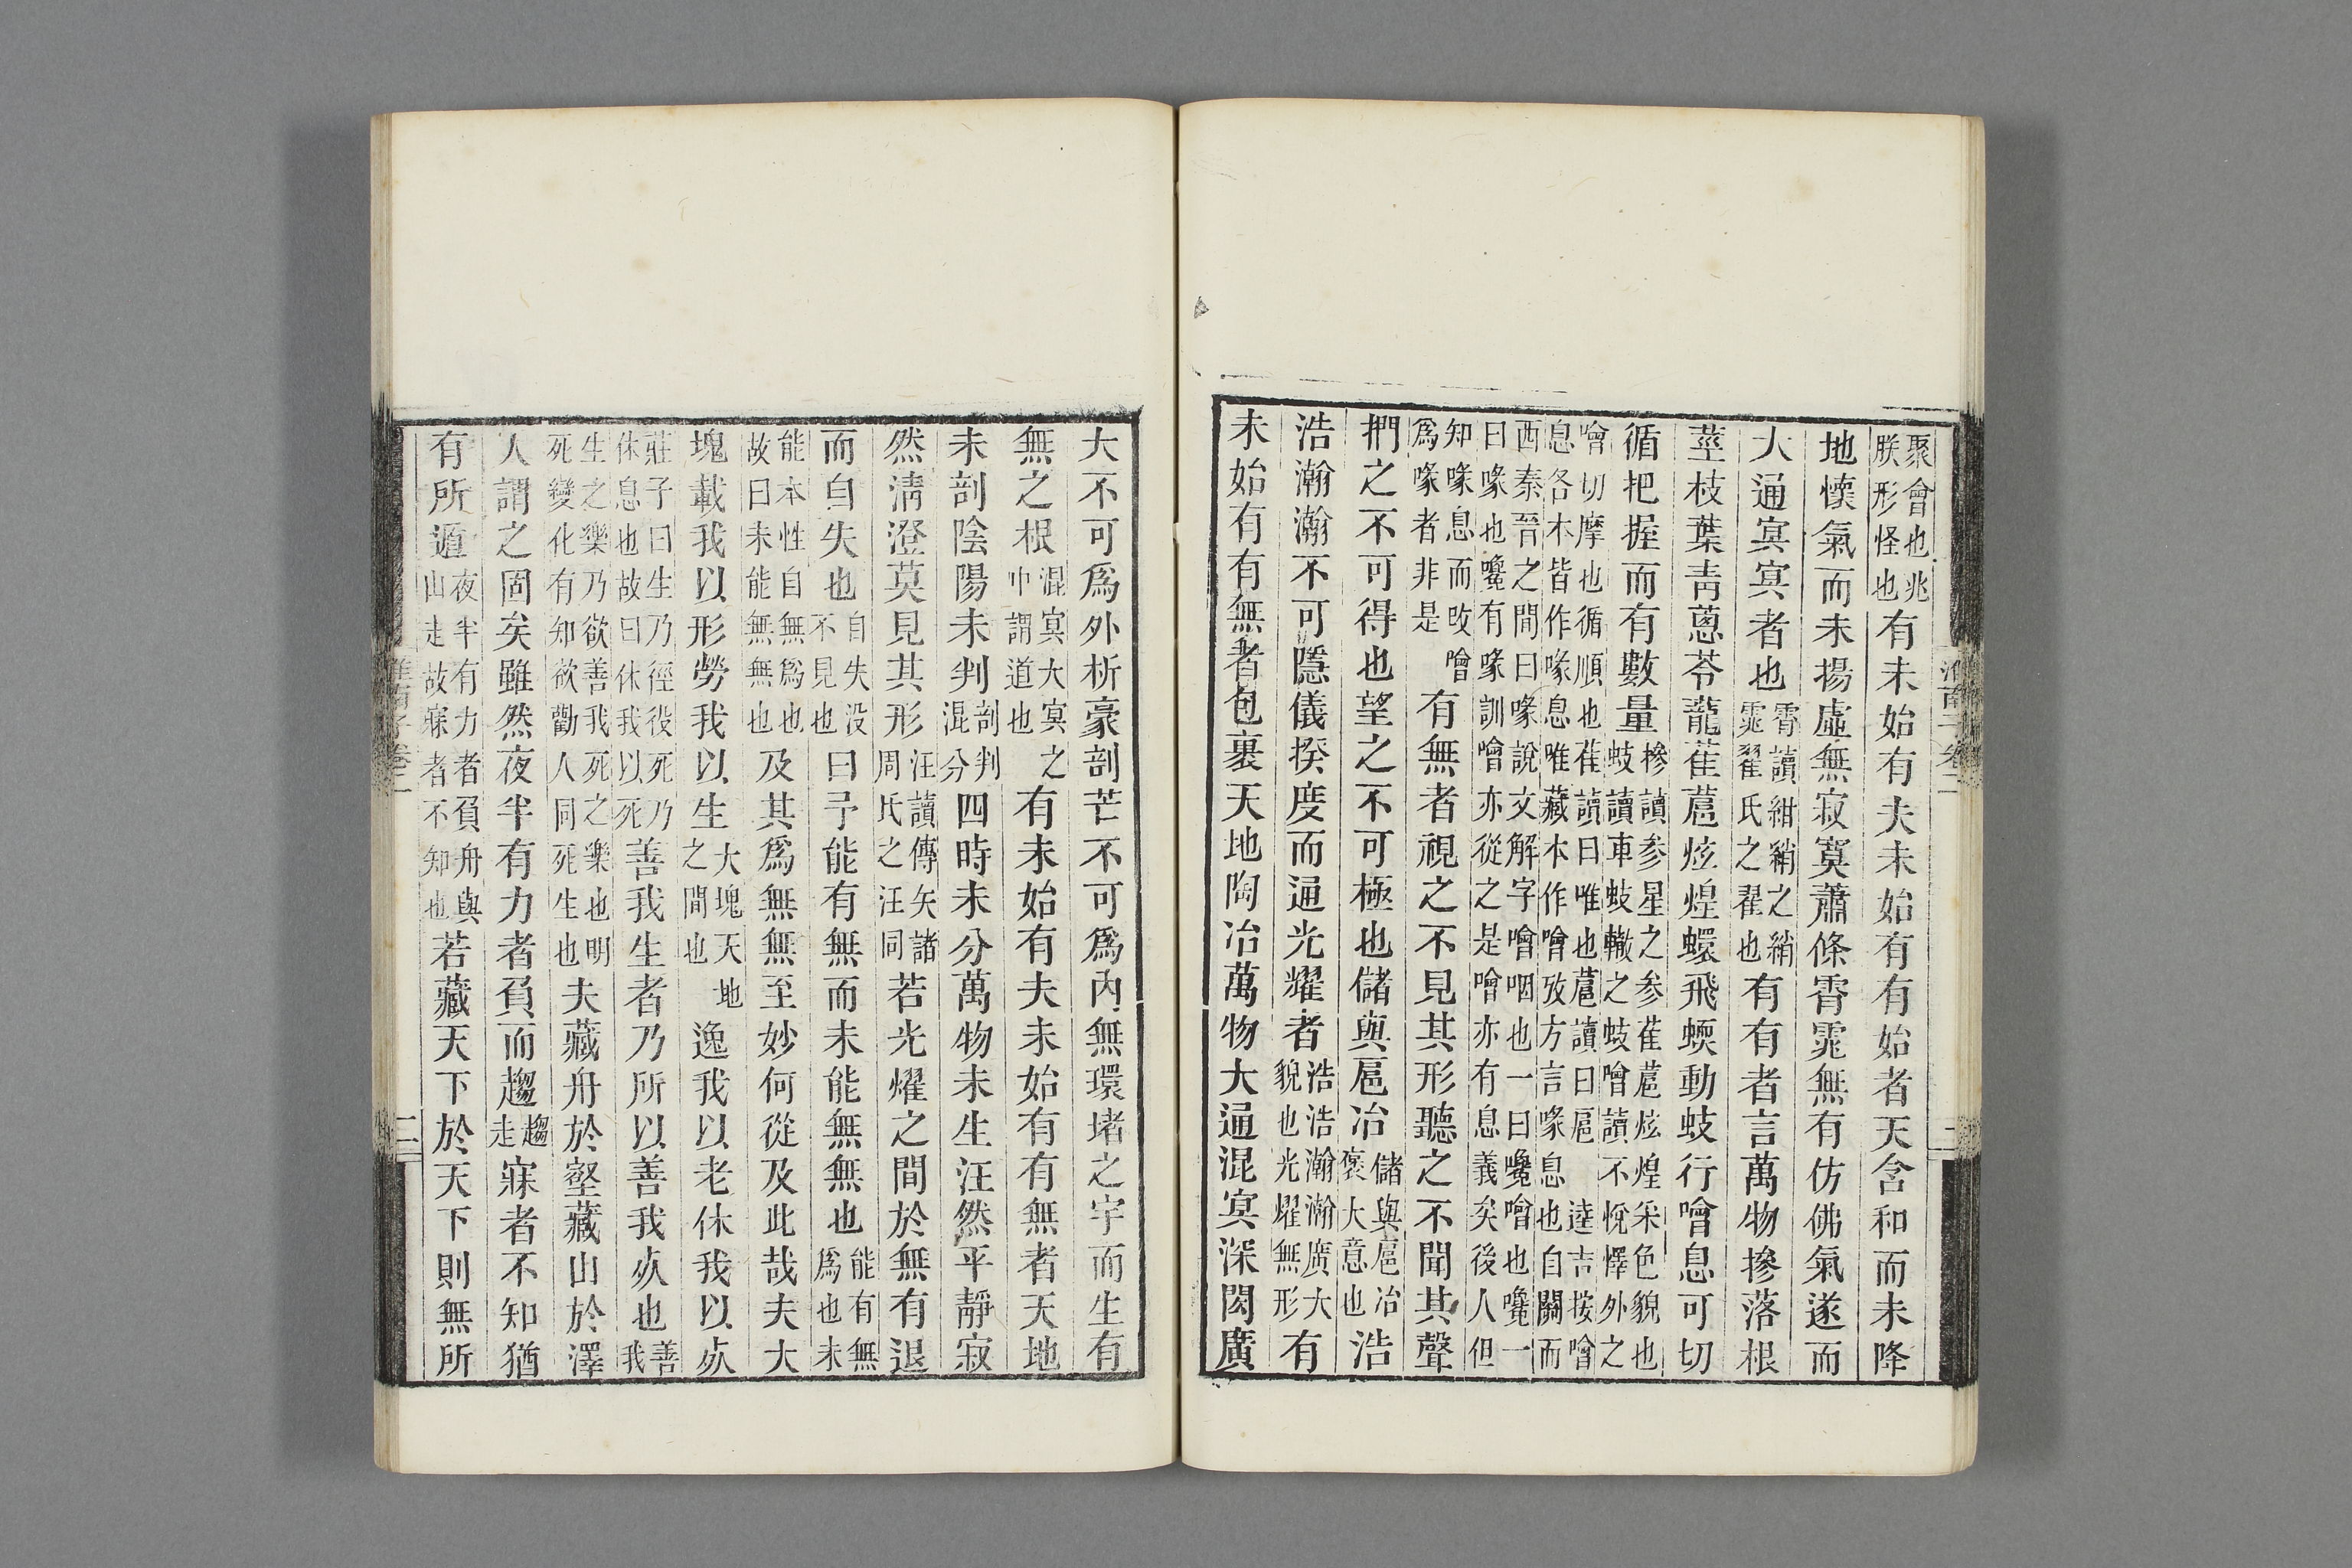 聚會也兆朕形怪也有未始有夫未始有有始者天含和而未降
地懷氣而未揚虛無寂寞蕭條霄雿無有仿佛氣遂而
大通冥冥者也霄讀紺綃之綃雿翟氏之翟也有有者言萬物摻落根
莖枝葉青蔥苓蘢萑蔰炫煌蠉飛蝡動蚑行噲息可切
循把握而有數量摻讀参星之参萑蔰炫煌采色貌也蚑讀車蚑轍之蚑噲讀不悅懌外之
噲切摩也循順也萑讀曰唯也蔰讀曰扈 逵吉按噲息各本皆作喙息唯藏本作噲攷方言喙息也自關而
西秦晉之間曰喙說文解字噲咽也一曰嚵噲也嚵一曰喙也嚵有喙訓噲亦從之是噲亦有息義矣後人但
知喙息而改噲爲喙者非是有無者視之不見其形聽之不聞其聲
捫之不可得也望之不可極也儲與扈冶儲與扈冶褒大意也浩
浩瀚瀚不可隱儀揆度而通光耀者浩浩瀚瀚廣大貌也光耀無形有
未始有有無者包裹天地陶冶萬物大通混冥深閎廣
大不可爲外析豪剖芒不可爲內無環堵之宇而生有
無之根混冥大冥之中謂道也有未始有夫未始有有無者天地
未剖陰陽未判剖判混分四時未分萬物未生汪然平靜寂
然清澄莫見其形汪讀傳矢諸周氏之汪同若光燿之間於無有退
而自失也自失没不見也曰予能有無而未能無無也能有無爲也未
能本性自無爲也故曰未能無無也及其爲無無至妙何從及此哉夫大
塊載我以形勞我以生大塊天地之間也逸我以老休我以㱙
莊子曰生乃徑役死乃休息也故曰休我以死善我生者乃所以善我㱙也善我
生之樂乃欲善我死之樂也明死變化有知欲勸人同死生也夫藏舟於壑藏山於澤
人謂之固矣雖然夜半有力者負而趨趨走寐者不知猶
有所遁夜半有力者負舟與山走故寐者不知也若藏天下於天下則無所
淮南子卷二
二